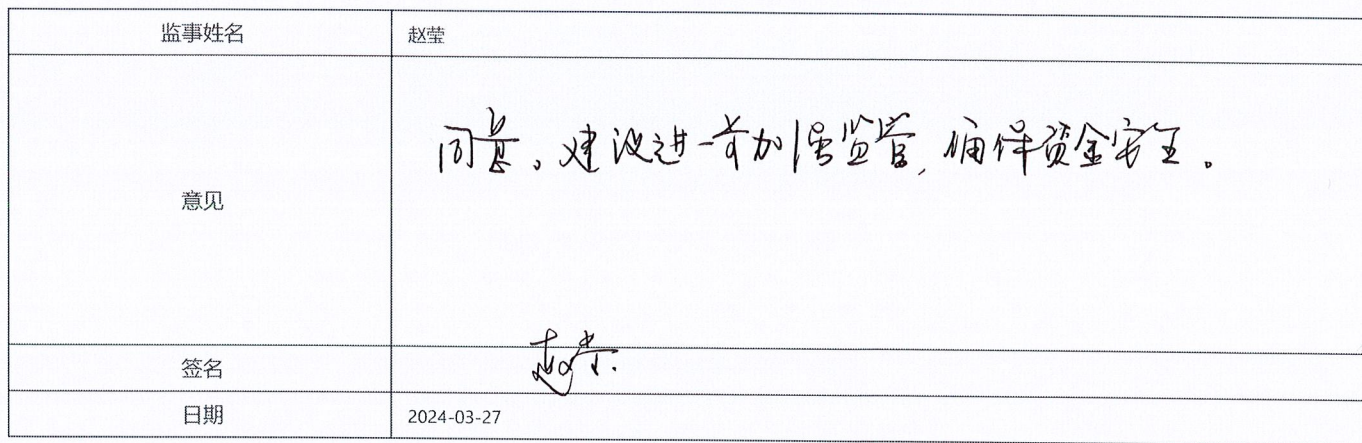 监事姓名 赵莹
意见 同意。建议进一步加强监管,确保资金安全。
签名 赵莹
日期 2024-03-27